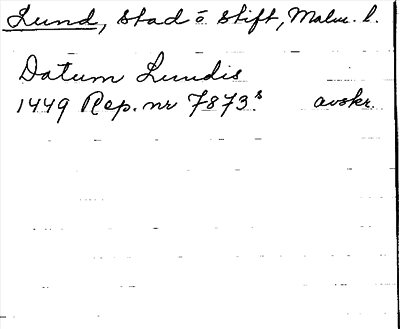 Lund, stad o stift, Malm. l.
Datum Lundis
1449 Rep. nr 7873ˢ. avskr.